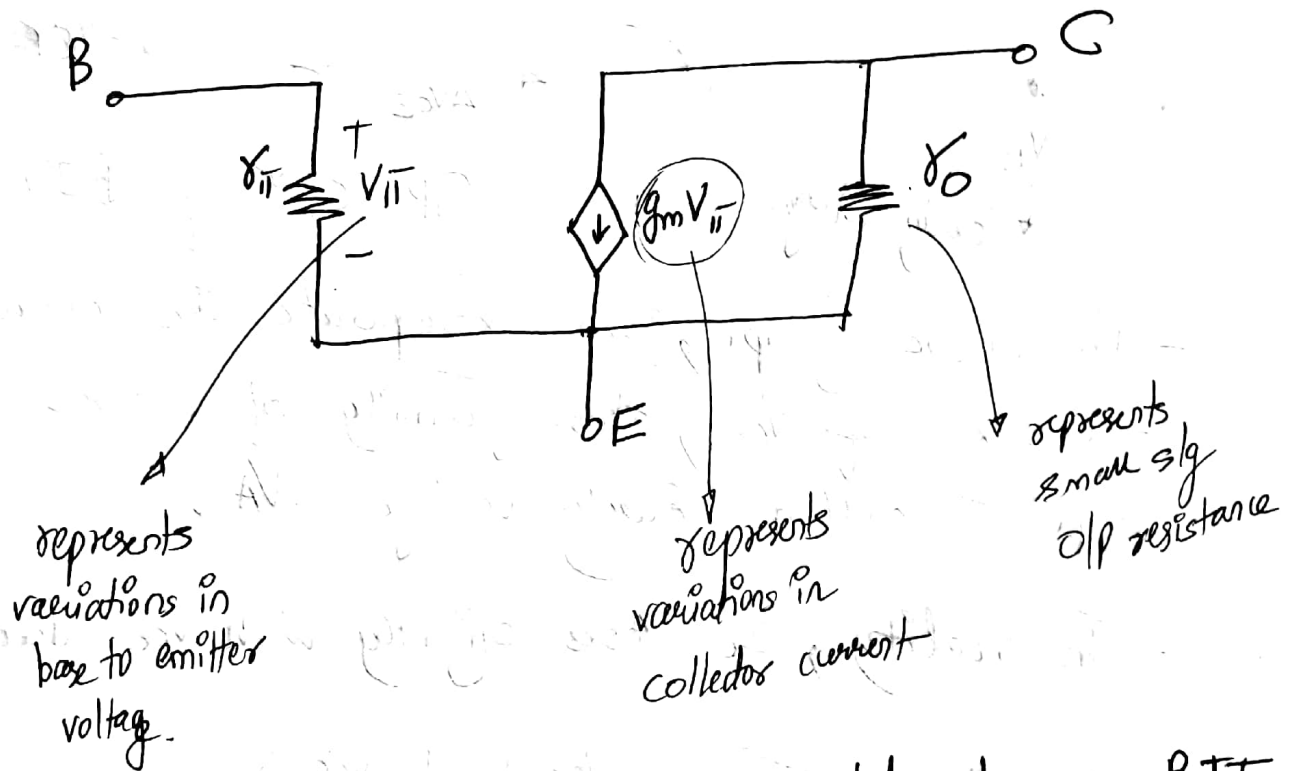 B
C
rπ
+
Vπ
−
gmVπ
ro
E
represents
variations in
base to emitter
voltage.
represents
variations in
collector current
represents
small s/g
O/P resistance
BJT